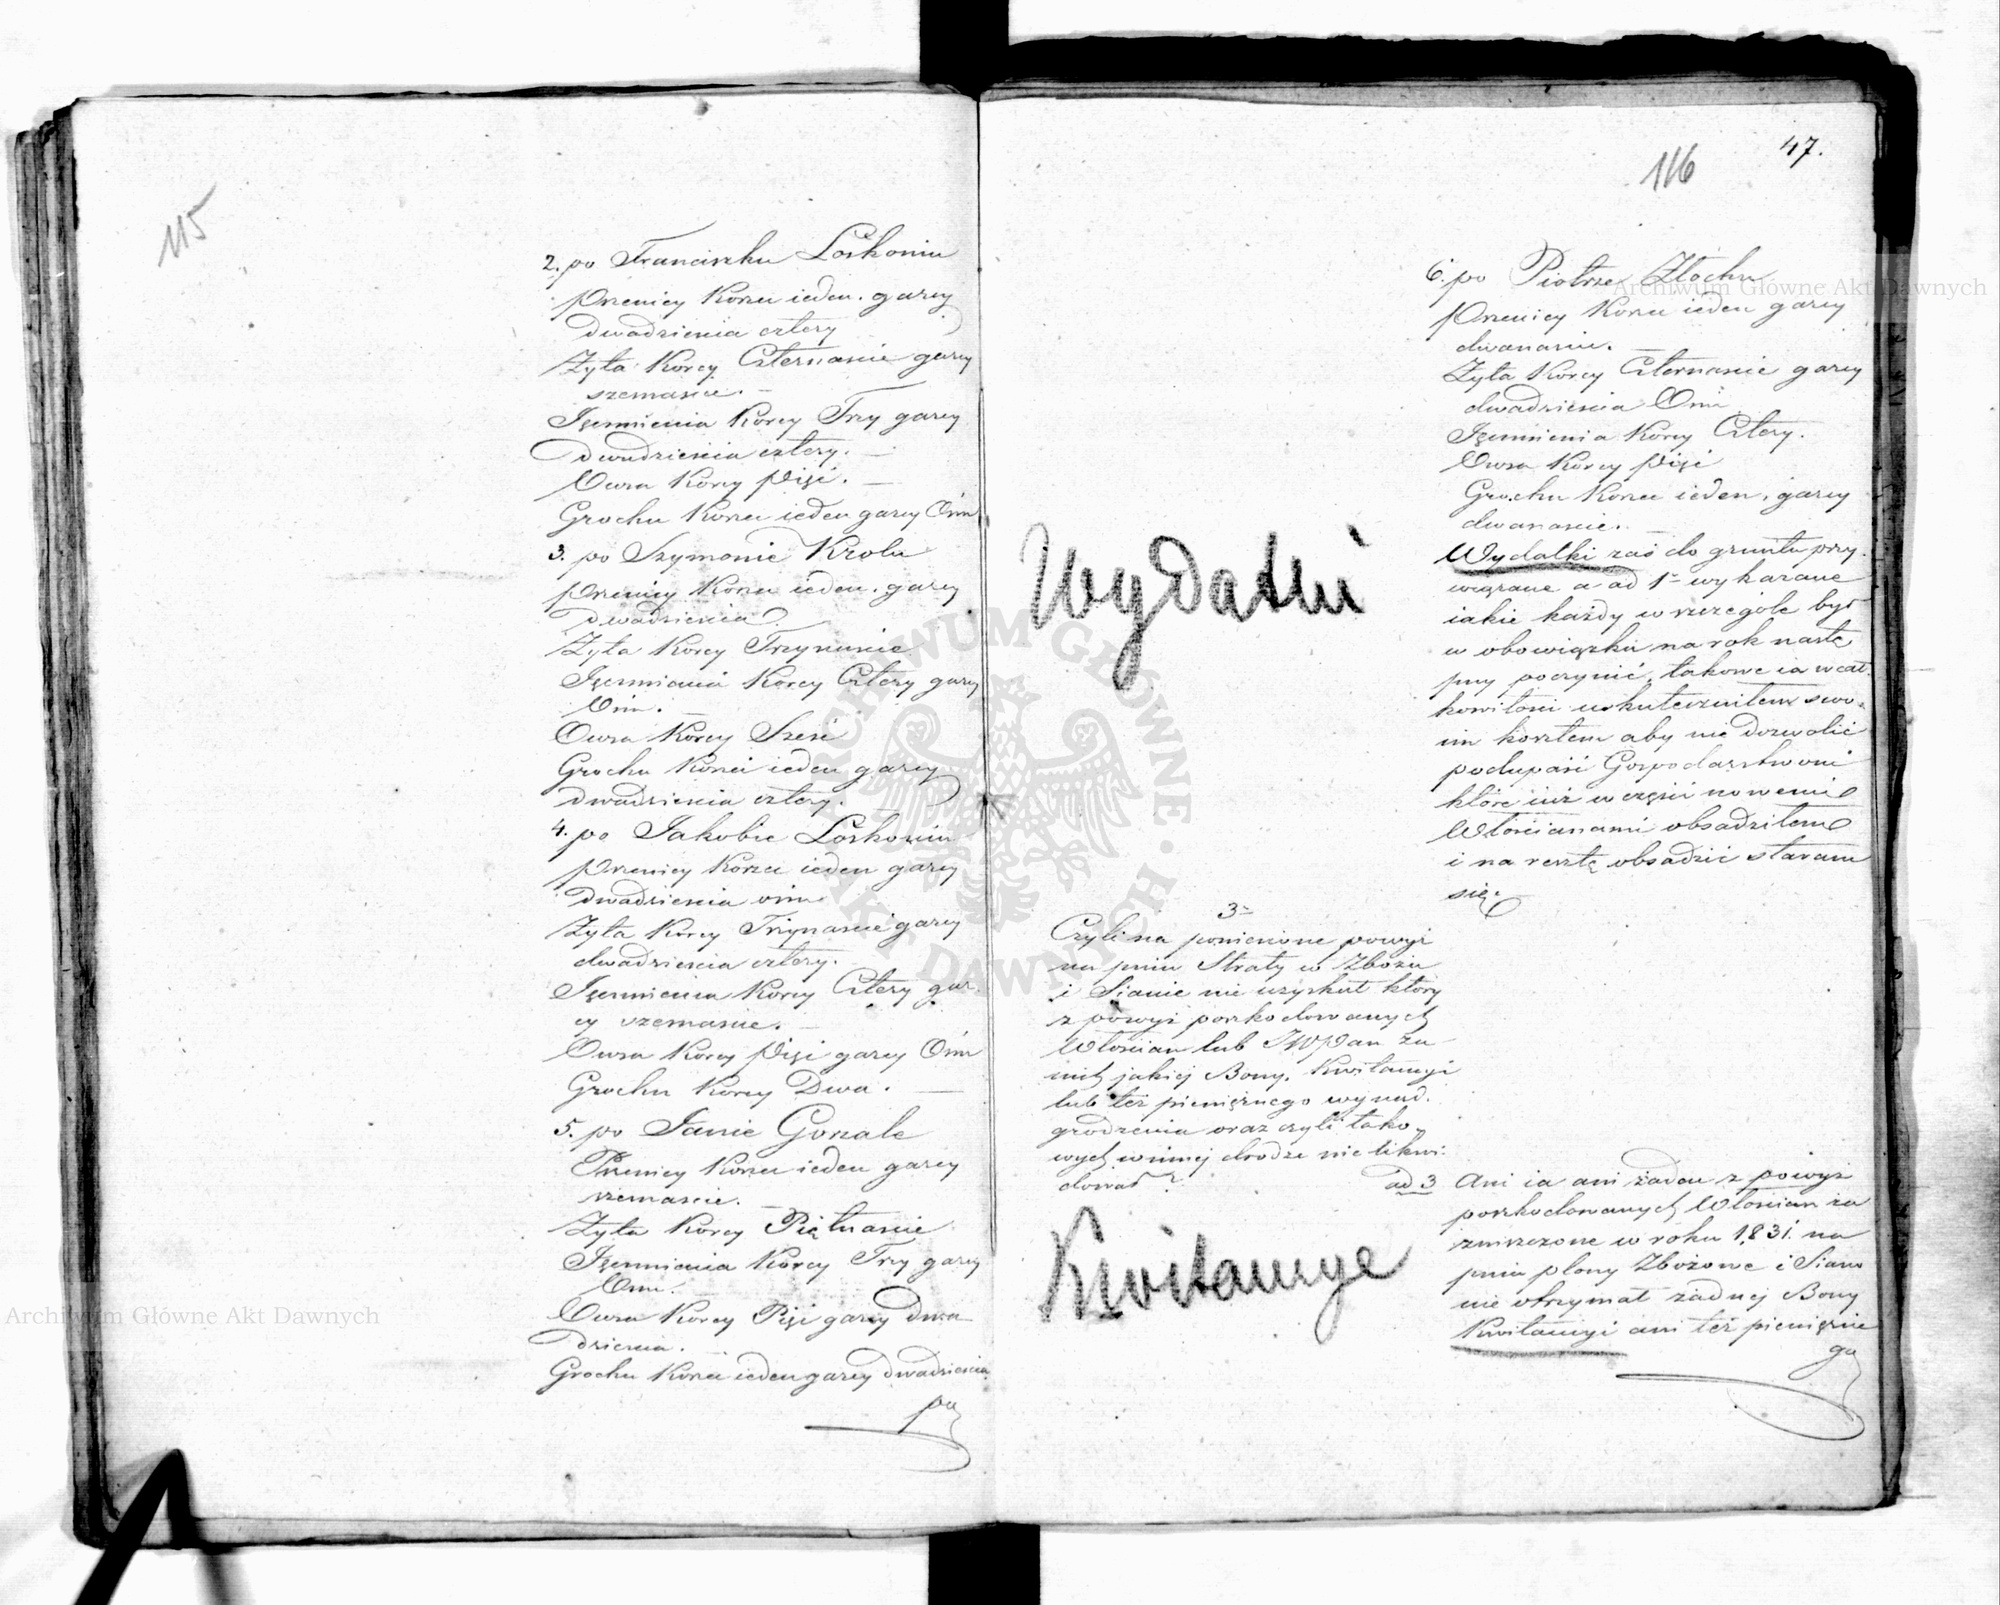 115
2. po Franciszku Loskoniu
Pszenicy Korzec ieden. garcy
dwadzieścia cztery
Żyta Korcy Czternaście garcy
szesnaście.
Jęczmienia Korcy Trzy garcy
dwadzieścia cztery.
Owsa Korcy Pięć.
Grochu Korzec ieden garcy Ośm
3. po Szymonie Krolu
Pszenicy Korzec ieden. garcy
dwadzieścia
Żyta Korcy Trzynaście
Jęczmienia Korcy Cztery garcy
Ośm.
Owsa Korcy Sześć
Grochu Korzec ieden garcy
dwadzieścia cztery.
4. po Jakobie Loskoniu
Pszenicy Korzec ieden garcy
dwadzieścia ośm
Żyta Korcy Trzynaście garcy
dwadzieścia cztery.
Jęczmienia Korcy Cztery gar
cy szesnaście.
Owsa Korcy Pięć garcy Ośm
Grochu Korcy Dwa.
5. po Janie Gorzale
Pszenicy Korzec ieden garcy
szesnaście.
Żyta Korcy Piętnaście
Jęczmienia Korcy Trzy garcy
Ośm.
Owsa Korcy Pięć garcy dwa
dzieścia.
Grochu Korzec ieden garcy dwadzieścia
po
47.
116
6. po Piotrze Złochu
Pszenicy Korzec ieden garcy
dwanaście.
Żyta Korcy Czternaście garcy
dwadzieścia Ośm
Jęczmienia Korcy Cztery.
Owsa Korcy Pięć
Grochu Korzec ieden, garcy
dwanaście.
Wydatki zaś do gruntu przy-
wiązane a ad 1 wykazane
iakie każdy w szczegole był
w obowiązku na rok nastę
pny poczynić, takowe ia w cał-
kowitości uskuteczniłem swo-
im kosztem aby nie dozwolić
podupaść Gospodarstwom
które iuż w części nowemi
Włościanami obsadziłem
i na resztę obsadzić staram
się.
Wydatki
3
Czyli na poniesione powyż
na pniu Straty w Zbożu
i Sianie nie uzyskał który
z powyż poszkodowanych
Włościan lub JWPan za
nich jakiej Bony, Kwitancyi
lub też pieniężnego wynad-
grodzenia oraz czyli tako-
wych w innej drodze nie likwi-
dował?
Kwitancye
ad 3 Ani ia ani żaden z powyż
poszkodowanych Włościan za
zniszczone w roku 1831. na
pniu plony Zbożowe i Siano
nie otrzymał żadnej Bony
Kwitancyi ani też pieniężne
go
Archiwum Główne Akt Dawnych
Archiwum Główne Akt Dawnych
ARCHIWUM GŁÓWNE AKT DAWNYCH